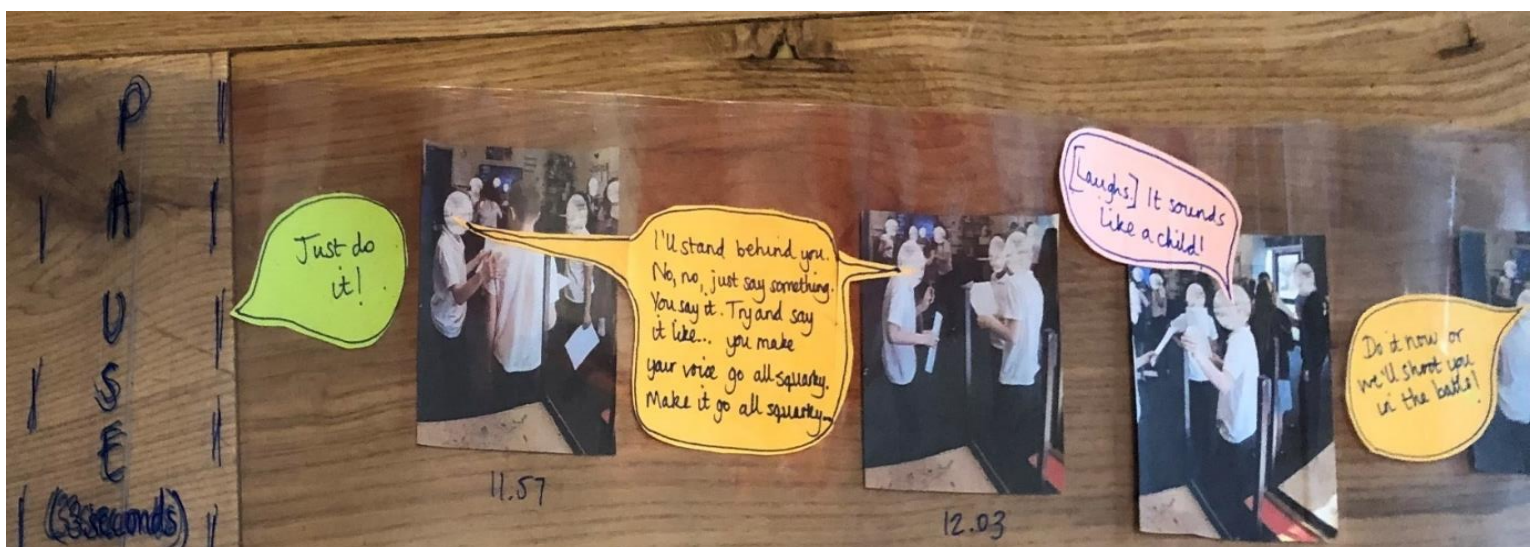 P
A
U
S
E
(53 seconds)
Just do
it!
11.57
I'll stand behind you.
No, no, just say something.
You say it. Try and say
it like... you make
your voice go all squarky.
Make it go all squarky...
12.03
[Laughs.] It sounds
like a child!
Do it now or
we'll shoot you
in the battle!